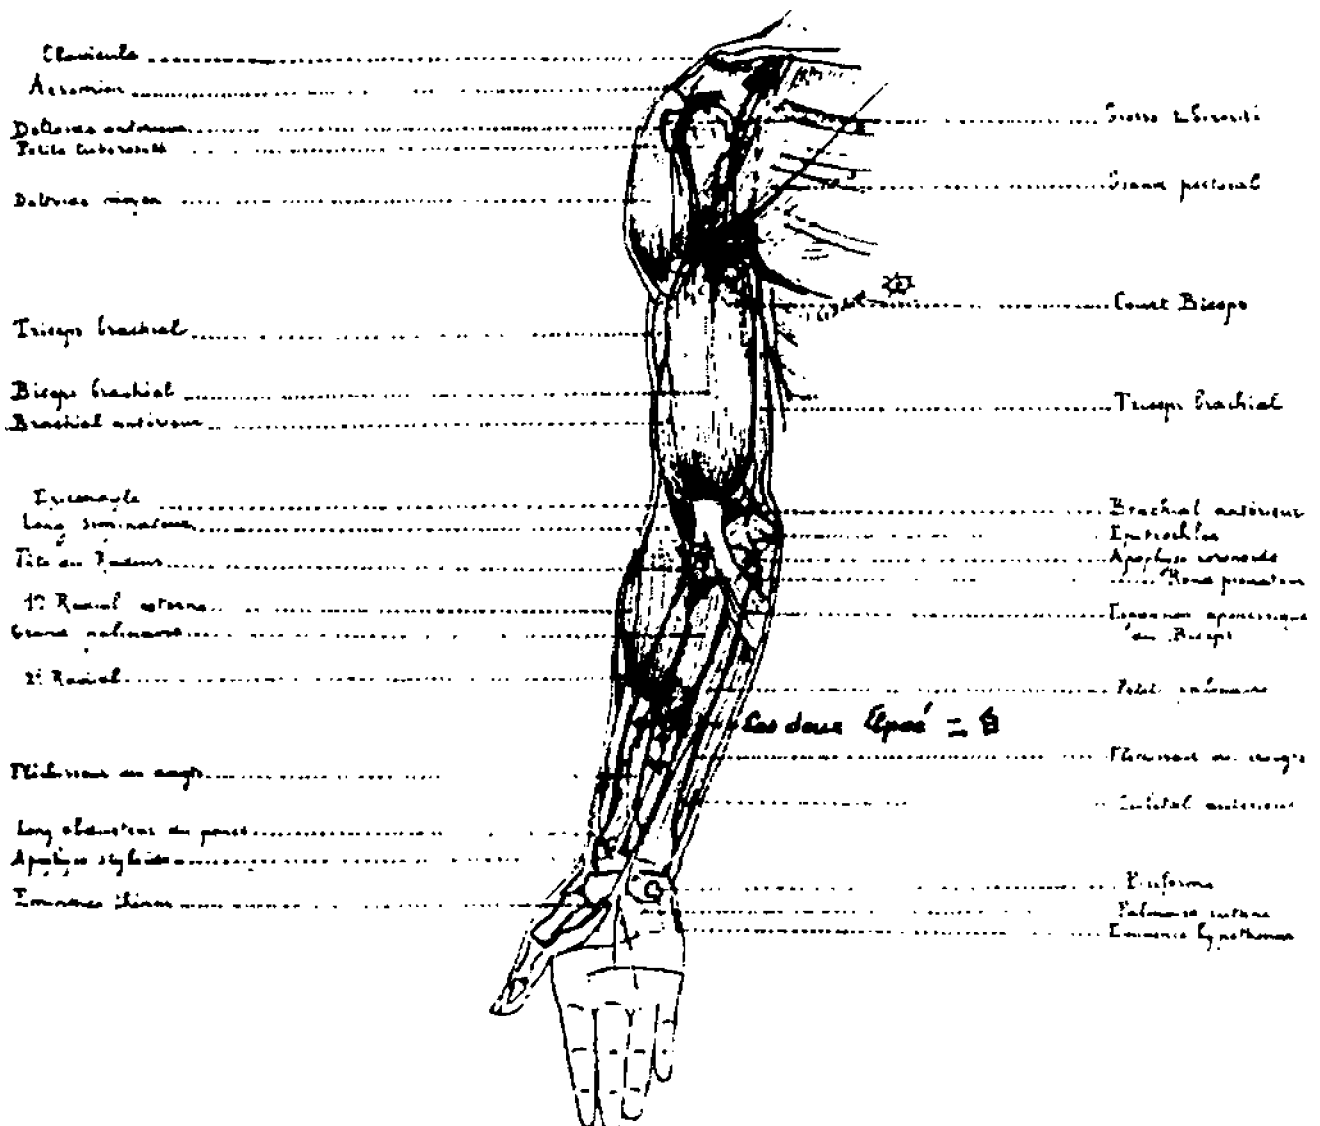 Clavicule
Acromion
Deltoïde antérieur
Petite tuberosité
Deltoïde moyen
Triceps brachial
Biceps brachial
Brachial antérieur
Long
Tête du Radius
1er Radial externe
Grand palmaire
2e Radial
Fléchisseur des doigts
Long abducteur du pouce
Apophyse styloïde
Eminence thénar
Grosse tuberosité
Grand pectoral
Court Biceps
Triceps brachial
Brachial antérieur
Epitrochlée
Apophyse coronoïde
Rond pronateur
Expansion aponevrotique
du Biceps
Petit palmaire
Les deux
Fléchisseur des doigts
Cubital antérieur
Pisiforme
Palmaire cutané
Eminence hypothenar